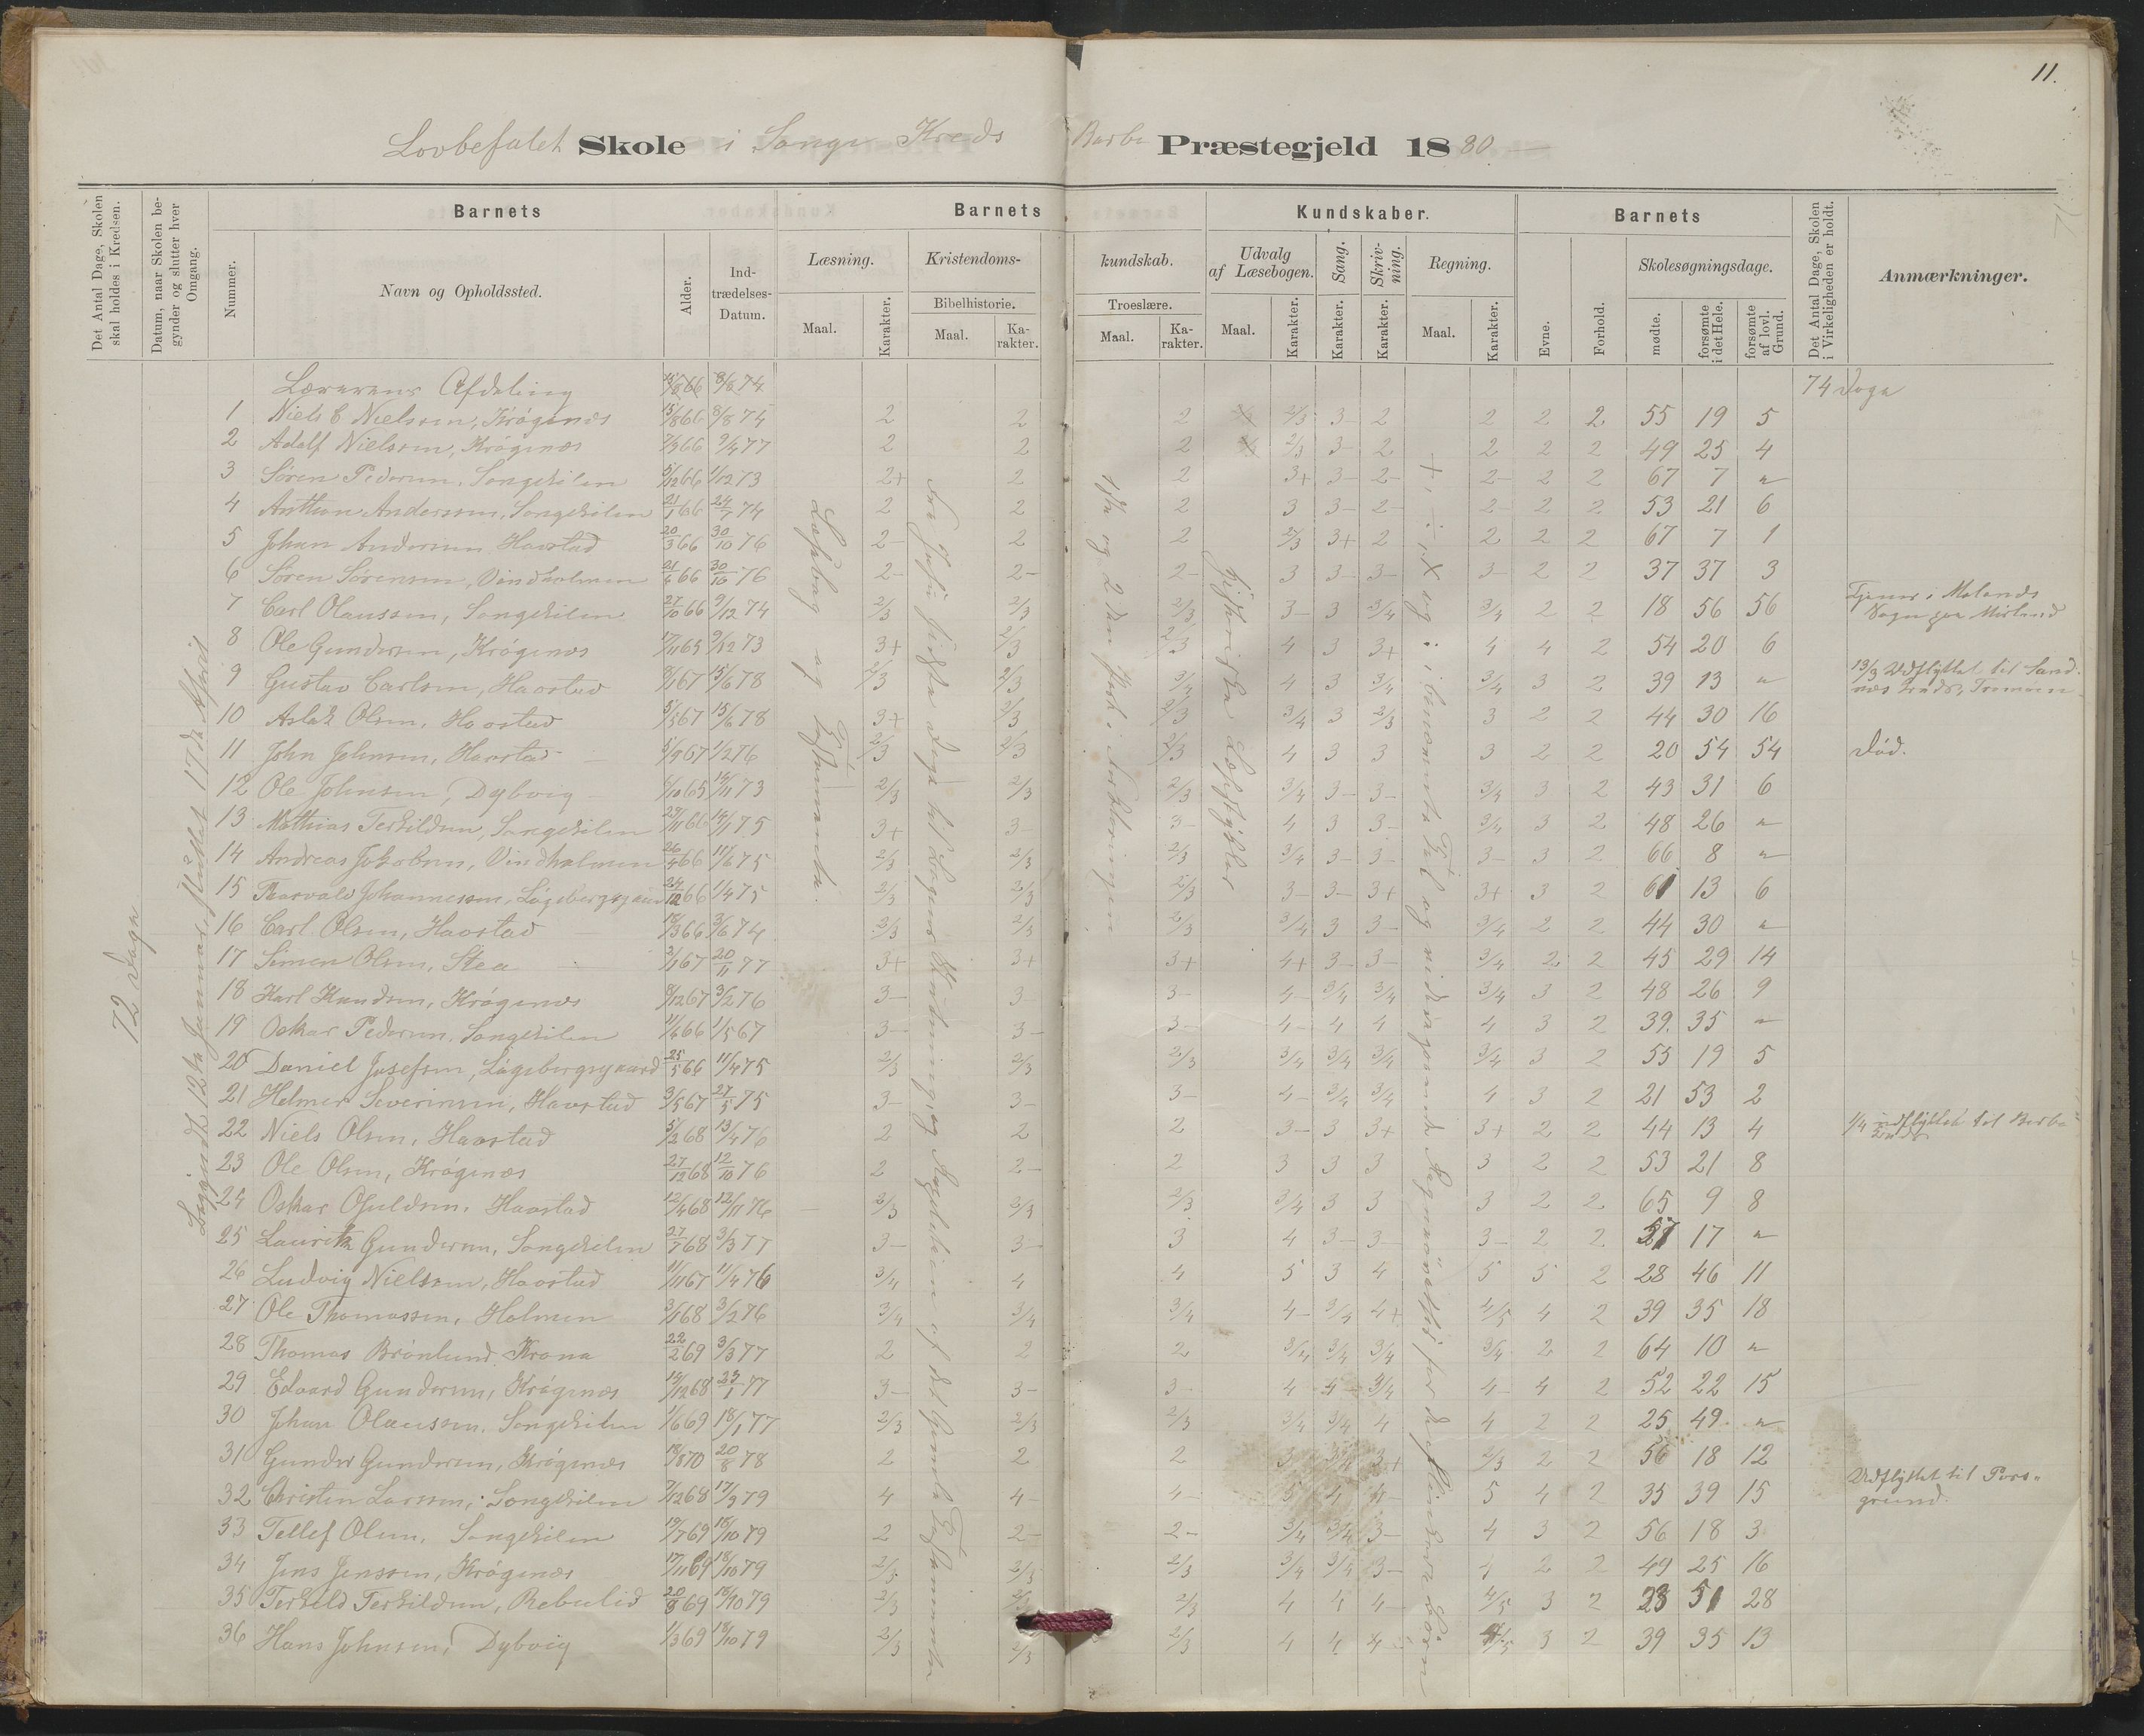 11.
Lovbefalet Skole i Songe Kreds Barbo Præstegjeld 1880
Det Antal Dage, Skolen skal holdes i Kredsen.
Datum, naar Skolen begynder og slutter hver Omgang.
Barnets
Nummer.
Navn og Opholdssted.
Alder.
Indtrædelses-Datum.
Barnets Kundskaber.
Læsning.
Maal.
Karakter.
Kristendomskundskab.
Bibelhistorie.
Maal.
Karakter.
Troeslære.
Maal.
Karakter.
Udvalg af Læsebogen.
Maal.
Karakter.
Sang.
Karakter.
Skrivning.
Karakter.
Regning.
Maal.
Karakter.
Barnets
Evne.
Forhold.
Skolesøgningsdage.
mødte.
forsømte i det Hele.
forsømte af lovl. Grund.
Det Antal Dage, Skolen i Virkeligheden er holdt.
Anmærkninger.
72 Dage
Begyndt 12te Januar, sluttet 17de April
Lærerens Afdeling 74 Dage
1 Niels C Nielsen, Krøgenes 15/8 66 8/8 74 2 2 2 2/3 3- 2 2 2 2 55 19 5
2 Adolf Nielsen, Krøgenes 7/3 66 9/4 77 2 2 2 2/3 3- 2 2 2 2 49 25 4
3 Søren Pedersen, Songekilen 5/12 66 1/12 73 2+ 2 2 3+ 3- 2- 2- 2 2 67 7 "
4 Anthon Anderssen, Songekilen 21/1 66 24/7 74 2 2 2 3 3- 2- 2- 2 2 53 21 6
5 Johan Andersen Havstad 20/3 66 30/10 76 2- 2 2 2/3 3+ 2 2 2 2 67 7 1
6 Søren Sørensen, Vindholmen 21/6 66 30/10 76 2- 2- 2- 3 3- 3- 3- 2 2 37 37 3
7 Carl Olaussen, Songekilen 27/10 66 9/12 74 2/3 2/3 2/3 3- 3 3/4 3/4 2 2 18 56 56 Tjener i Molands Sogn paa Mirland
8 Ole Gundersen, Krøgenes 17/11 65 9/12 73 3+ 2/3 2/3 4 3 3+ 4 4 2 54 20 6
9 Gustav Carlsen, Havstad 8/1 67 15/6 78 2/3 2/3 3/4 4 3 3/4 3/4 3 2 39 13 " 13/3 Udflyttet til Sandnes Kreds, Tromøen
10 Aslak Olsen, Havstad 5/5 67 15/6 78 3+ 2/3 2/3 3/4 3 2/3 3 2 2 44 30 16
11 John Johnsen, Havstad 5/9 67 1/2 76 2/3 2/3 2/3 4 3 3 3 2 2 20 54 54 Død.
12 Ole Johnsen, Dybvig 6/10 65 14/11 73 2/3 2/3 2/3 3/4 3- 3- 3/4 3 2 43 31 6
13 Mathias Terkildsen, Songekilen 29/11 66 14/1 75 3+ 3- 3- 4 3 3- 3/4 3 2 48 26 "
14 Andreas Jakobsen, Vindholmen 26/4 66 11/6 75 2/3 2/3 2/3 3/4 3- 3- 3- 3 2 66 8 "
15 Thorvald Johannessen, Løgebergsgaard 24/12 66 1/4 75 2/3 2/3 2/3 3- 3- 3+ 3+ 3 2 61 13 6
16 Carl Olsen, Havstad 18/3 66 3/6 74 2/3 2/3 2/3 3/4 3 3- 3/4 2 2 44 30 "
17 Simen Olsen, Stea 2/1 67 20/11 77 3+ 3+ 3+ 4+ 3- 3- 3/4 2 2 45 29 14
18 Karl Knudsen, Krøgenes 8/12 67 3/2 76 3- 3- 3- 4- 3/4 3/4 3/4 3 2 48 26 9
19 Oskar Pedersen, Songekilen 11/6 66 1/5 67 3- 3- 3- 4- 4 4 4 3 2 39. 35 "
20 Daniel Josefsen, Løgebergsgaard 25/5 66 11/4 75 2/3 2/3 2/3 3/4 3/4 3/4 3/4 3 2 55 19 5
21 Helmer Severinsen, Havstad 3/5 67 27/5 75 3- 3- 3- 4- 3/4 3/4 4 3 2 21 53 2
22 Niels Olsen, Havstad 5/2 68 13/4 76 2 2 2 3- 3 3+ 3+ 2 2 44 13 4 1/4 udflyttet til Barbo Kreds
23 Ole Olsen, Krøgenes 27/12 68 12/10 76 2 2- 2 3 3 3 3 2 2 53 21 8
24 Oskar Ofuldsen, Havstad 12/4 68 12/11 76 2/3 2/3 2/3 3/4 3 3 3 2 2 65 9 8
25 Lauritz Gundersen, Songekilen 27/7 68 3/3 77 3- 3- 3 4 3- 3- 3- 2 2 17 "
26 Ludvig Nielsen, Havstad 11/11 67 11/4 76 3/4 4 4 5 3 4 5 5 2 28 46 11
27 Ole Thomassen, Holmen 3/1 68 3/2 76 3/4 3/4 3/4 4- 3/4 4+ 4/5 4 2 39 35 18
28 Thomas Brønlund Krona 22/2 69 3/3 77 2 2 2 3/4 3/4 3/4 3/4 2 2 64 10 "
29 Edvard Gundersen, Krøgenes 19/12 68 23/1 77 3- 3- 3- 4 4- 3/4 4- 4 2 52 22 15
30 Johan Olaussen, Songekilen 1/6 69 18/1 77 2/3 2/3 2/3 3/4 3/4 4 4 2 2 25 49 "
31 Gunder Gundersen, Krøgenes 18/3 70 20/8 78 2 2 2 3 3/4 3+ 2/3 2 2 56 18 12
32 Christen Larssen, Songekilen 7/12 68 17/9 79 4 4- 4- 5 4 4- 5 4 2 35 39 15 Udflyttet til Porsgrund.
33 Tellef Olsen, Songekilen 19/7 69 18/10 79 2 2- 2- 3/4 3/4 3- 4 3 2 56 18 3
34 Jens Jenssen, Krøgenes 17/11 69 18/10 79 2/3 2/3 2/3 3/4 3/4 3- 4 2 2 49 25 16
35 Terkeld Terkildsen, Rebulid 20/9 69 18/10 79 2/3 2/3 2/3 4 4 4- 4/5 3 2 23 51 28
36 Hans Johnsen, Dybvig 1/3 69 18/10 79 2/3 2/3 2/3 4 4 4- 4/5 3 2 39 35 13
Læsebog og Testamente.
Fra Jesu sidste Dage til Legens Udvikling og Angdelsen af det gamle Testamente
1ste og 2den Part i Forklaringen
Historiske Læsestykker